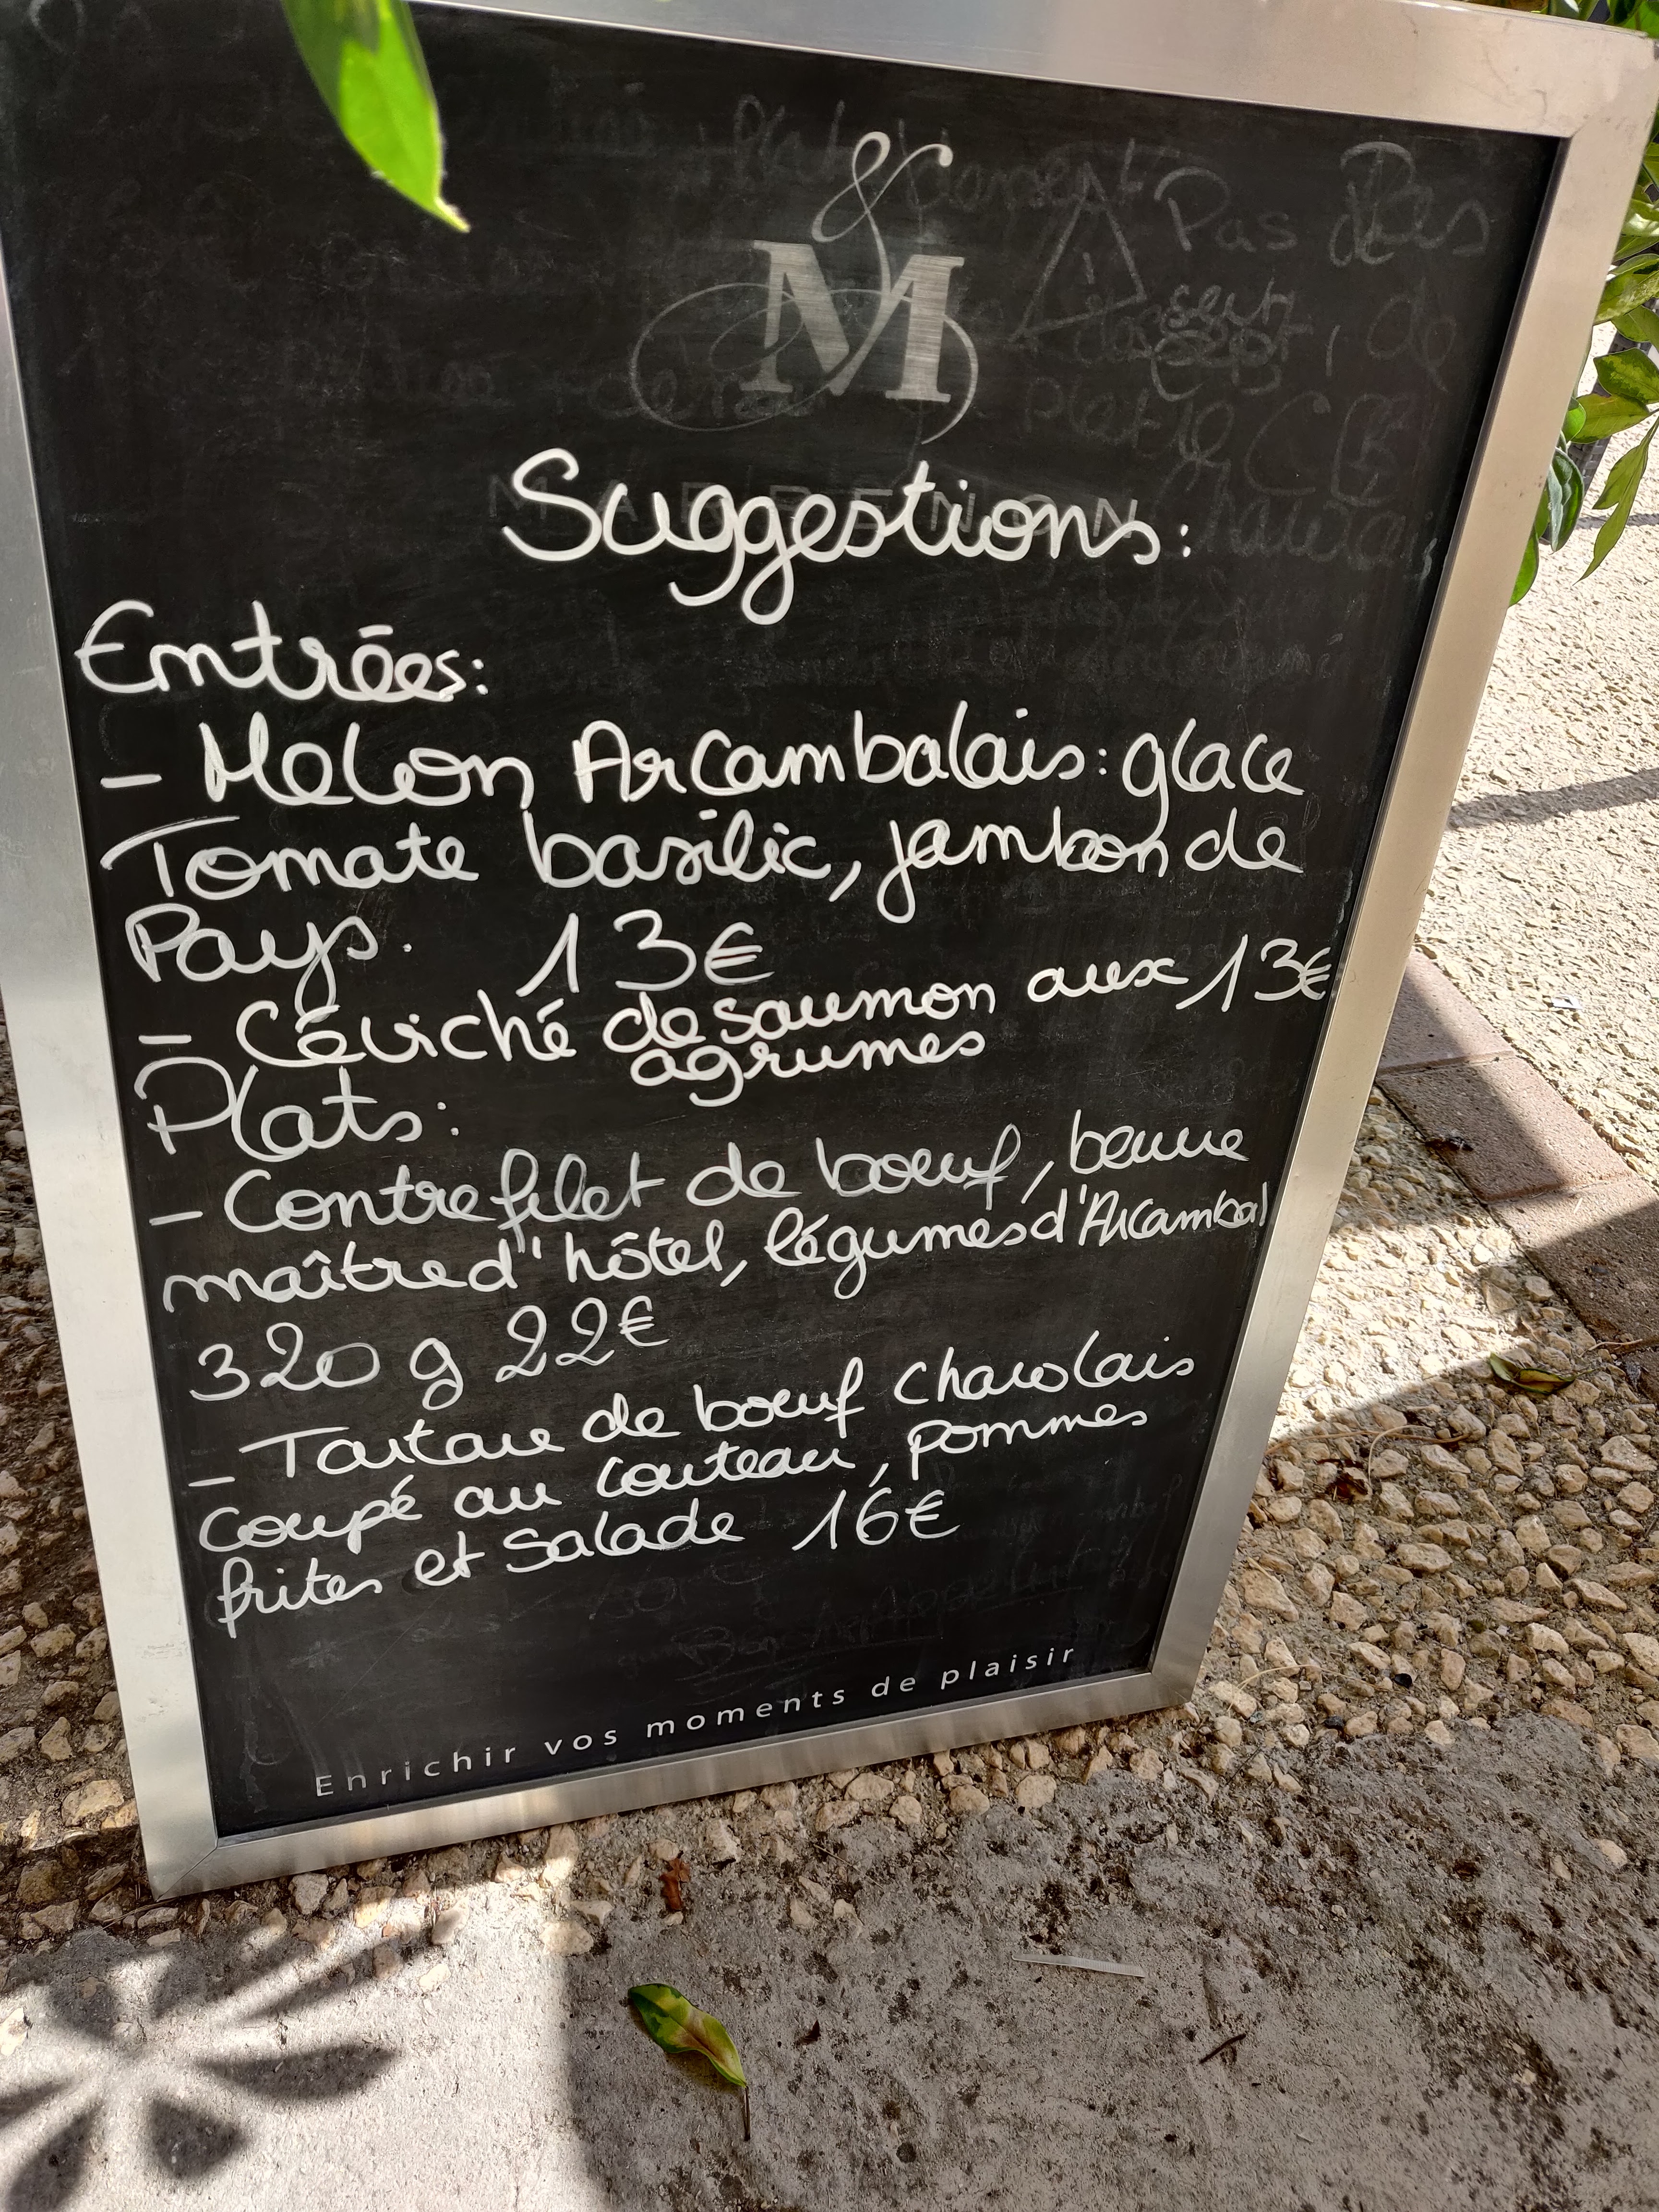 M
Suggestions:
Entrées:
- Melon Arcambalais: glace
Tomate basilic, jambon de
Pays. 13€
- Céviché de saumon aux 13€
agrumes
Plats:
- Contrefilet de boeuf, beurre
maître d'hôtel, légumes d'Arcambal
320 g 22€
- Tartare de boeuf charolais
coupé au couteau, pommes
frites et Salade 16€
Enrichir vos moments de plaisir